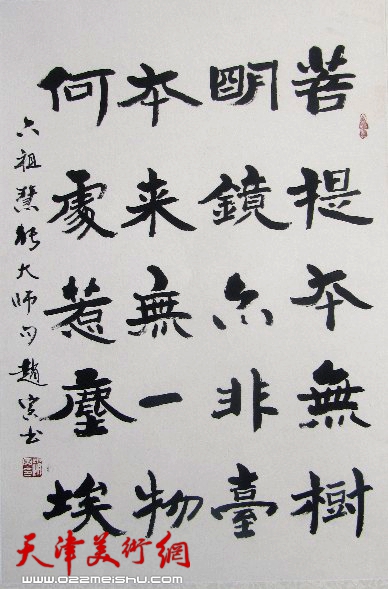 菩提本無樹
明鏡亦非臺
本来無一物
何處惹塵埃
六祖慧能大師句趙寅书
天津美術網
www.022meishu.com